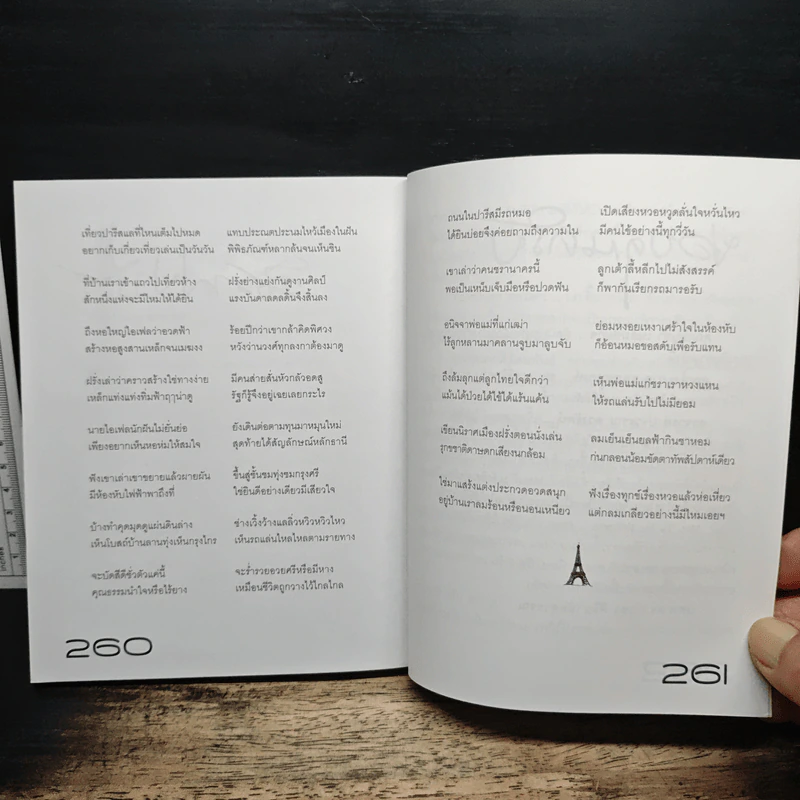 เที่ยวปารีสแลที่ไหนเต็มไปหมด แทบประณตประนมไหว้เมืองในฝัน
อยากเก็บเกี่ยวเที่ยวเล่นเป็นวันวัน พิพิธภัณฑ์หลากล้นจนเห็นชิน
ที่บ้านเราเช้าแถวไปเที่ยวห้าง ฝรั่งย่างแย่งกันดูงานศิลป์
สักหนึ่งแห่งจะมีไหมให้ได้ยิน แรงบันดาลดลดิ้นจึงสิ้นลง
ถึงหอใหญ่ไอเฟลว่าอวดฟ้า ร้อยปีกว่าเขากล้าคิดพิศวง
สร้างหอสูงสานเหล็กจนเมฆงง หวังว่านวงศ์ทุกลงกาต้องมาดู
ฝรั่งเล่าว่าคราวสร้างใช่ทางง่าย มีคนส่ายสั่นหัวกลัวอดสู
เหล็กแท่งแท่งทิ่มฟ้าฤๅน่าดู รัฐก็รู้จึงอยู่เฉยเลยกระไร
นายไอเฟลนักฝันไม่ยั่นย่อ ยังเดินต่อตามทุนมาหมุนใหม่
เพียงอยากเห็นหอห่มให้สมใจ สุดท้ายได้สัญลักษณ์หลักธานี
ฟังเขาเล่าเขาขยายแล้วผายผัน ขึ้นสู่ชั้นชมทุ่งชมกรุงศรี
มีห้องหับไฟฟ้าพาถึงที่ ใช่ยินดีอย่างเดียวมีเสียวใจ
บ้างทำคุดมุดดูแผ่นดินล่าง ช่างเวิ้งว้างแลลิ่วหวิวหวิวไหว
เห็นโบสถ์บ้านลานทุ่งเห็นกรุงไกร เห็นรถแล่นไหลไหลตามรายทาง
จะบัดสีดีชั่วตัวแค่นี้ จะร่ำรวยอวยศรีหรือมีหาง
คุณธรรมนำใจหรือไร้ยาง เหมือนชีวิตถูกวางไว้ไกลไกล
260
ถนนในปารีสมีรถหมอ เปิดเสียงหวอหวูดลั่นใจหวั่นไหว
ได้ยินบ่อยจึงค่อยถามถึงความใน มีคนใช้อย่างนี้ทุกวี่วัน
เขาเล่าว่าคนชรานาครนี้ ลูกเต้าลี้หลีกไปไม่สังสรรค์
พอเป็นเหน็บเจ็บมือหรือปวดฟัน ก็พากันเรียกรถมารอรับ
อนิจจาพ่อแม่ที่แก่เฒ่า ย่อมหงอยเหงาเศร้าใจในห้องหับ
ไร้ลูกหลานมาคลานจูบมาลูบจับ ก็อ้อนหมอขอสดับเพื่อรับแทน
ถึงล้มลุกแต่ลูกไทยใจดีกว่า เห็นพ่อแม่แก่ชราเราหวงแหน
แม้นได้ป่วยได้ไข้ได้แร้นแค้น ให้รถแล่นรับไปไม่มียอม
เขียนนิราศเมืองฝรั่งตอนนั่งเล่น ลมเย็นเย็นยลฟ้ากินชาหอม
รุกขชาติดาษดกเสียงนกล้อม ก่นกลอนน้อมขัดตาทัพสัปดาห์เดียว
ใช่มาแสร้งแต่งประกวดอวดสนุก ฟังเรื่องทุกข์เรื่องหวอแล้วห่อเหี่ยว
อยู่บ้านเราลมร้อนหรือนอนเหนียว แต่กลมเกลียวอย่างนี้มีไหมเอยฯ
261